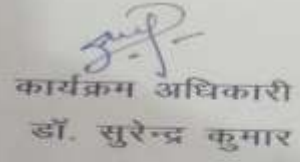 कार्यक्रम अधिकारी
डॉ. सुरेन्द्र कुमार